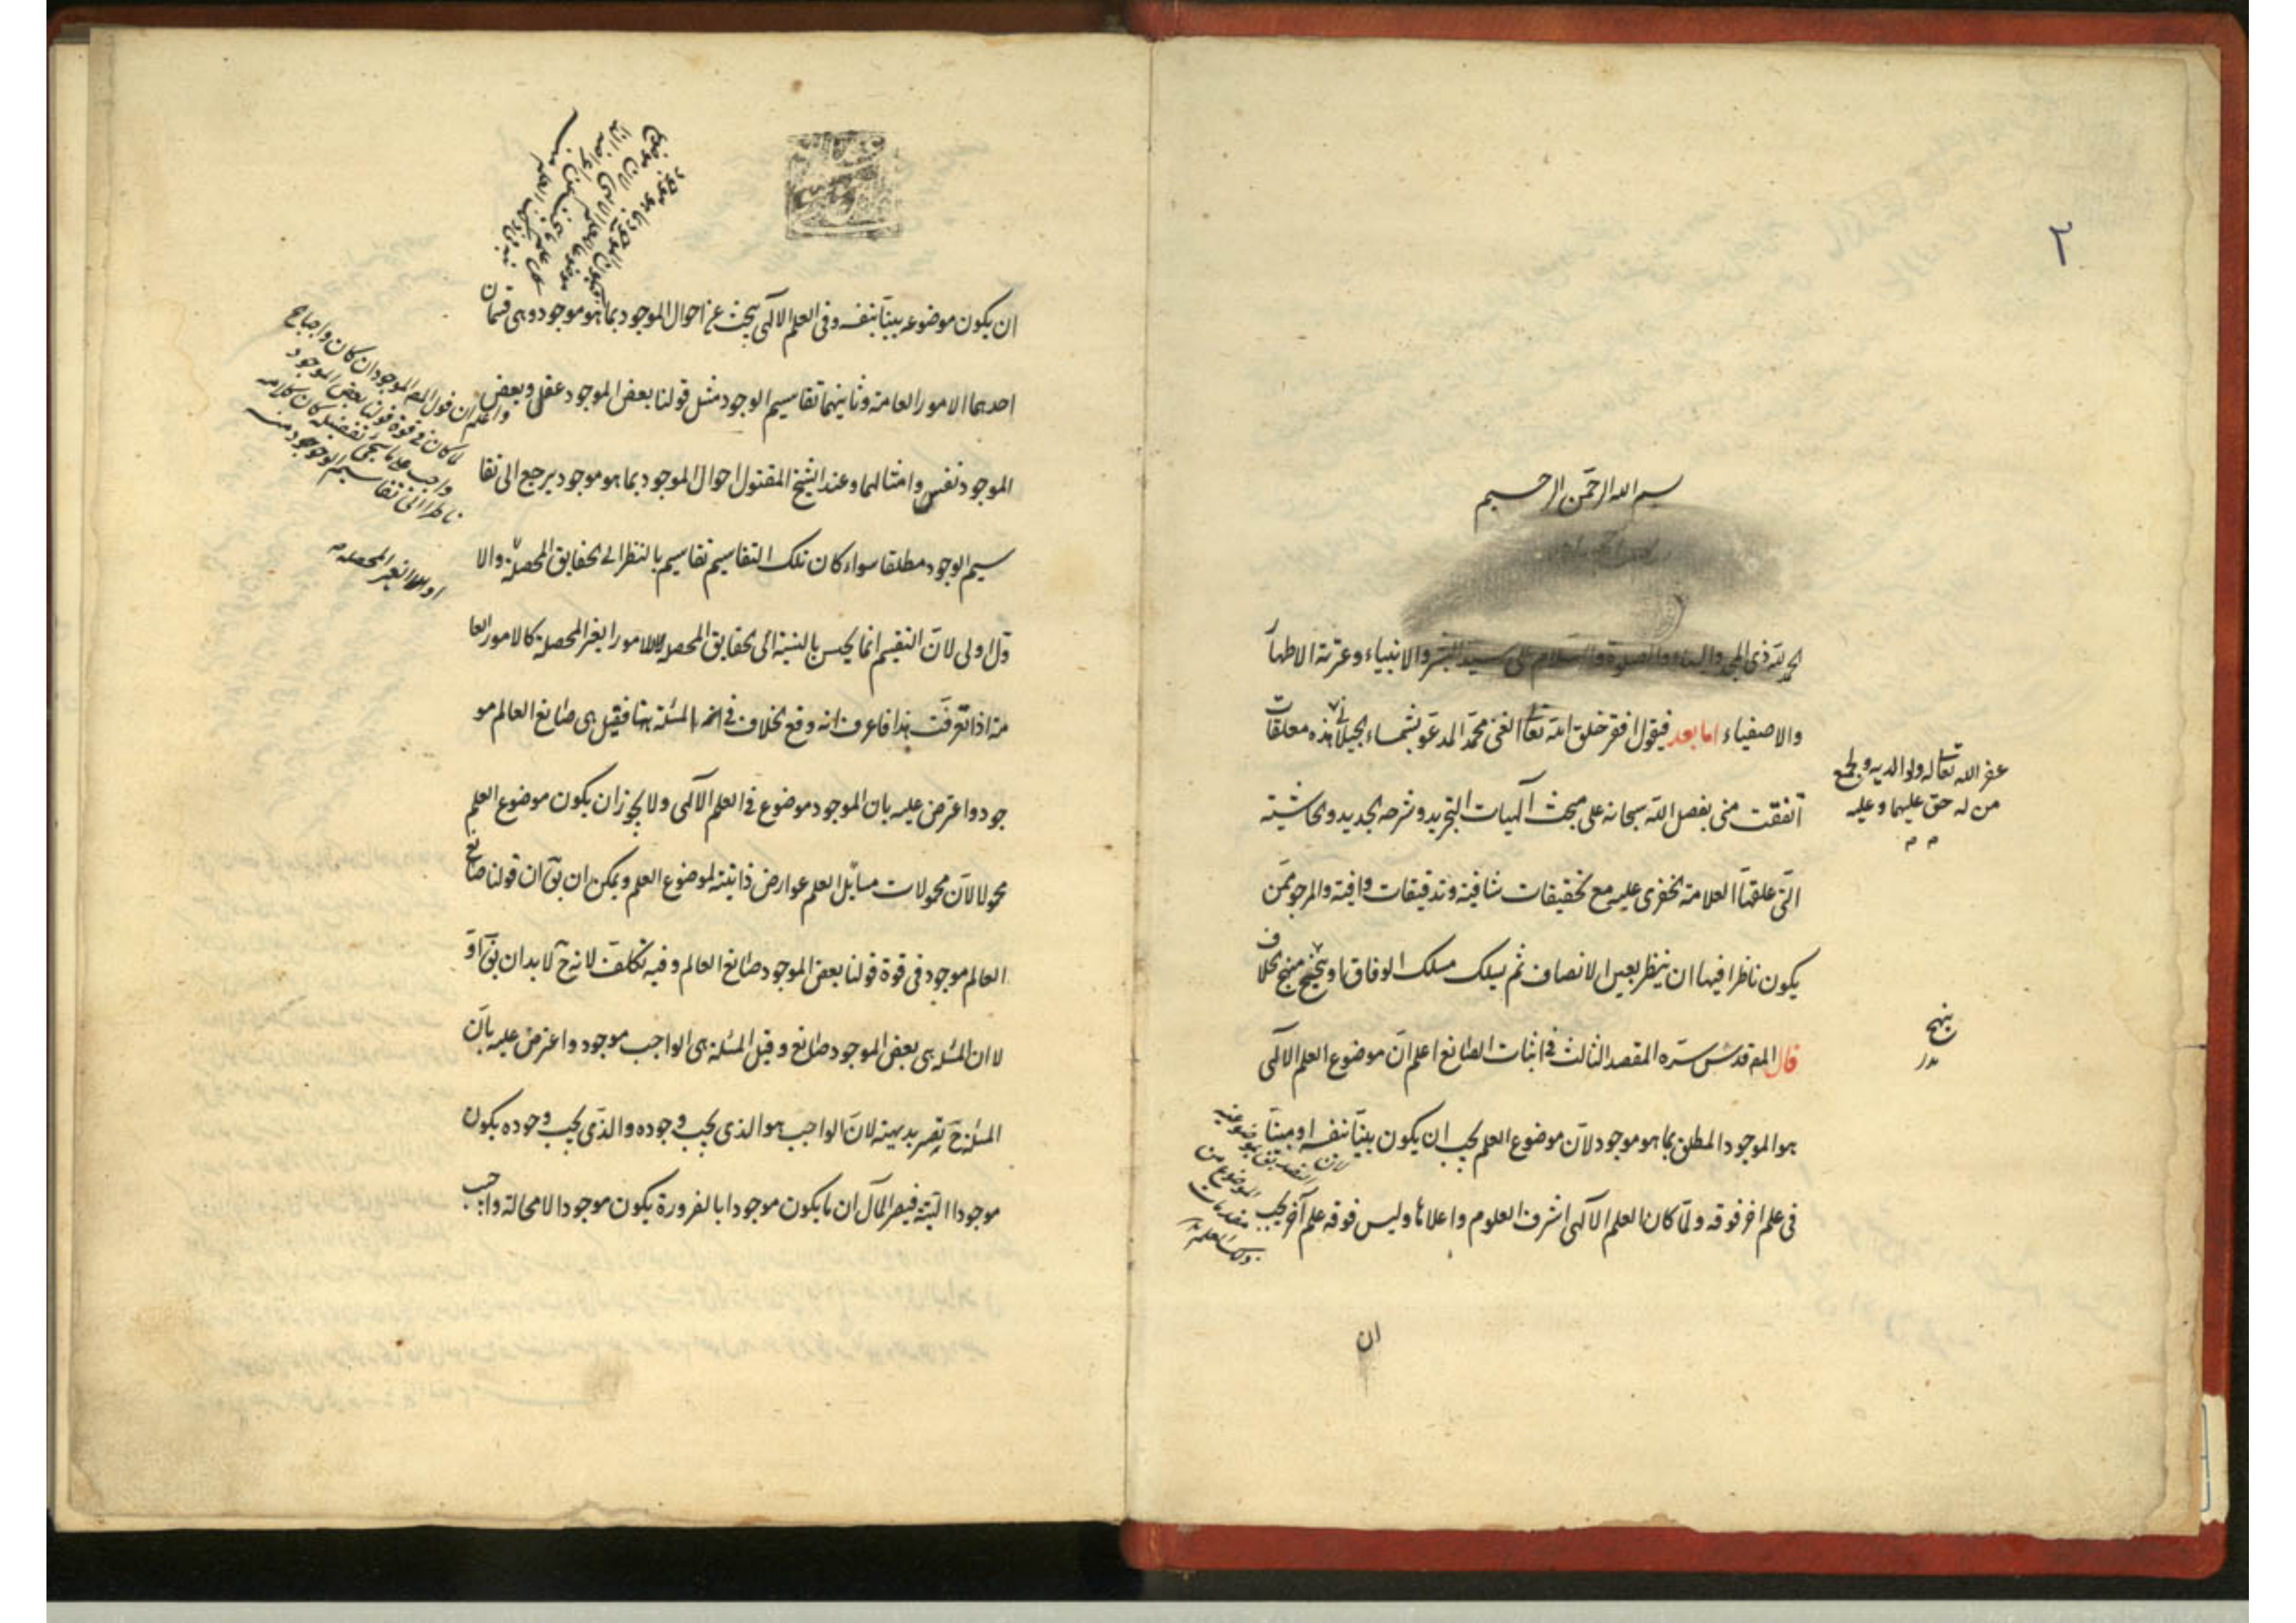 ٢
بسم الله الرحمن الرحيم
الحمد لله ذى المجد والبهاء والصلوة والسلام على سيد البشر والانبياء وعترته الاطهار
والاصفياء اما بعد فيقول افقر خلق الله تعالى الغنى محمد المدعو بشمساء الجيلانى هذه معلقات
غفر الله تعالى له ولوالديه ولجميع
من له حق عليهما وعليه
اتفقت منى بفضل الله سبحانه على مبحث آلهيات التجريد وشرحه الجديد والحاشية
التى علقها العلامة الخفرى عليه مع تحقيقات شافية وتدقيقات وافية والمرجو ممن
يكون ناظرا فيها ان ينظر بعين الانصاف ثم يسلك مسلك الوفاق او ينهج منهج الخلاف
ينهج
قال المص قدس سره المقصد الثالث فى اثبات الصانع اعلم ان موضوع العلم الالهى
هو الموجود المطلق بما هو موجود لان موضوع العلم يجب ان يكون بينا بنفسه او مبينا
فى علم اخر فوقه ولما كان العلم الالهى اشرف العلوم واعلاها وليس فوقه علم آخر يجب
ان
ان يكون موضوعه بينا بنفسه وفى العلم الالهى يبحث عن احوال الموجود بما هو موجود وهى قسمان
احدهما الامور العامة وثانيهما تقاسيم الوجود مثل قولنا بعض الموجود عقل وبعض
الموجود نفس وامثالهما وعند الشيخ المقتول احوال الموجود بما هو موجود يرجع الى تقا
سيم الوجود مطلقا سواء كان تلك التقاسيم تقاسيم بالنظر الى الحقايق المحصلة والا
ول اولى لان التقسيم انما يحسن بالنسبة الى الحقايق المحصلة لا الامور الغير المحصلة كالامور العا
مة اذا تعرفت هذا فاعرف انه وقع الخلاف فى ان المسئلة هنا فقيل هى صانع العالم مو
جود واعترض عليه بان الموجود موضوع فى العلم الالهى ولا يجوز ان يكون موضوع العلم
محمولا لان محمولات مسايل العلم عوارض ذاتية لموضوع العلم ويمكن ان يق ان قولنا صانع
العالم موجود فى قوة قولنا بعض الموجود صانع العالم وفيه تكلف لانه ح لابد ان يق اوّ
لا ان المسئلة هى بعض الموجود صانع وقيل المسئلة هى الواجب موجود واعترض عليه بان
المسئلة ح يصير بديهية لان الواجب هو الذى يجب وجوده والذى يجب وجوده يكون
موجودا البتة فيصير المآل ان ما يكون موجودا بالضرورة يكون موجودا لا محالة واجيب
واعلم ان قول المص الموجود ان كان واجبا الخ
لا كان فى قوة قولنا بعض الموجود
واجب
ناظرا الى تقاسيم الوجود منه
او للامور الغير المحصلة